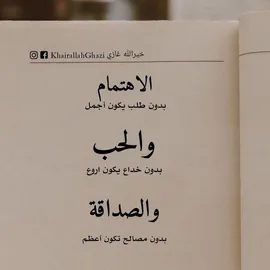 خيرالله غازي KhairallahGhazi
الاهتمام
بدون طلب يكون أجمل
والحب
بدون خداع يكون اروع
والصداقة
بدون مصالح تكون أعظم